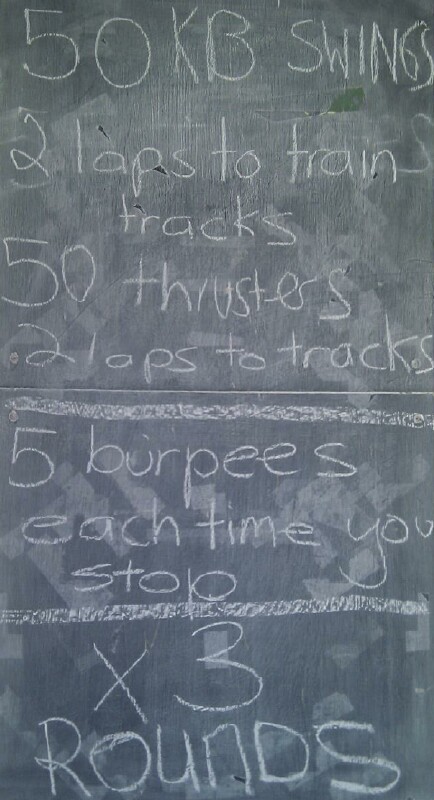 50 KB SWINGS
2 laps to train
tracks
50 thrusters
2 laps to tracks
5 burpees
each time you
stop
x 3
ROUNDS